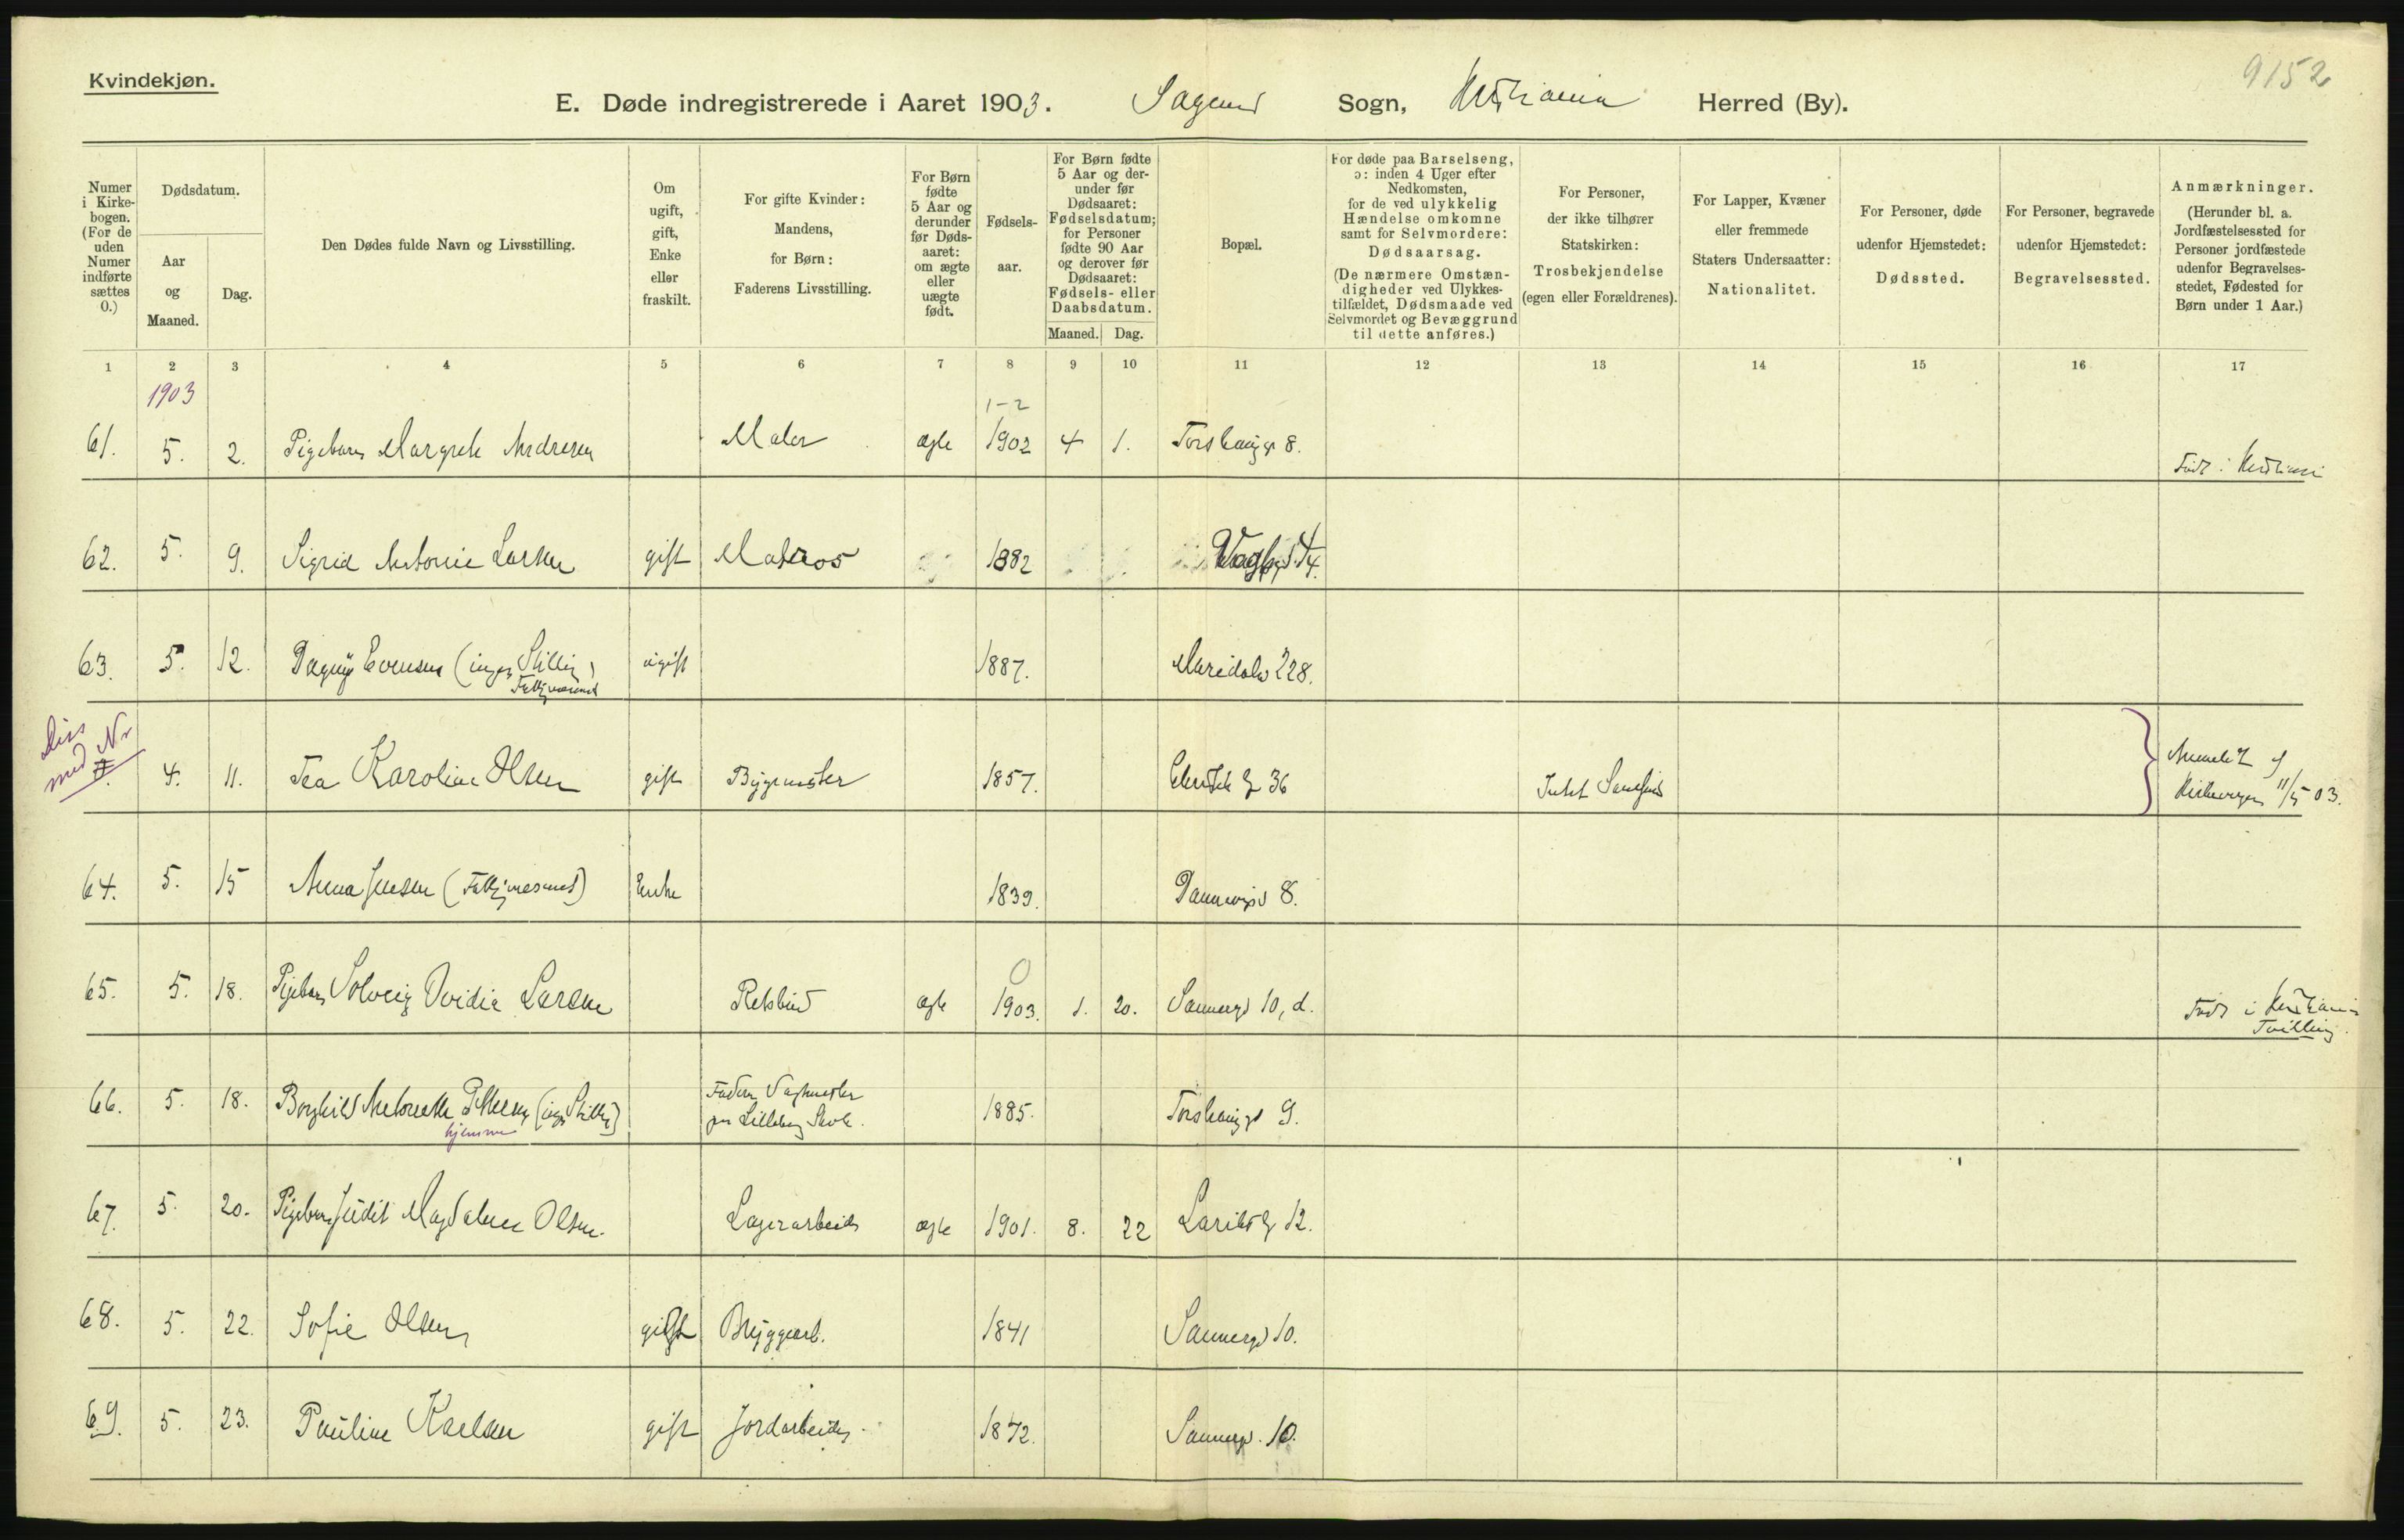 Kvindekjøn.
9152
E. Døde indregistrerede i Aaret 1903. Sagenes Sogn, Kristiania Herred (By).
Numer i Kirke-bogen. (For de uden Numer indførte sættes 0.)
Dødsdatum.
Aar og Maaned.
Dag.
Den Dødes fulde Navn og Livsstilling.
Om ugift, gift, Enke eller fraskilt.
For gifte Kvinder: Mandens, for Børn: Faderens Livsstilling.
For Børn fødte 5 Aar og derunder før Døds-aaret: om ægte eller uægte født.
Fødsels-aar.
For Børn fødte 5 Aar og der-under før Dødsaaret: Fødselsdatum; for Personer fødte 90 Aar og derover før Dødsaaret: Fødsels- eller Daabsdatum.
Maaned. Dag.
Bopæl.
For døde paa Barselseng, ɔ: inden 4 Uger efter Nedkomsten, for de ved ulykkelig Hændelse omkomne samt for Selvmordere: Dødsaarsag. (De nærmere Omstæn-digheder ved Ulykkes-tilfældet, Dødsmaade ved Selvmordet og Bevæggrund til dette anføres.)
For Personer, der ikke tilhører Statskirken: Trosbekjendelse (egen eller Forældrenes).
For Lapper, Kvæner eller fremmede Staters Undersaatter: Nationalitet.
For Personer, døde udenfor Hjemstedet: Dødssted.
For Personer, begravede udenfor Hjemstedet: Begravelsessted.
Anmærkninger. (Herunder bl. a. Jordfæstelsessted for Personer jordfæstede udenfor Begravelses-stedet, Fødested for Børn under 1 Aar.)
1 2 3 4 5 6 7 8 9 10 11 12 13 14 15 16 17
1903
1-2
61. 5. 2. Pigebarn Margrete Andresen Maler ægte 1902 4 1. Torshaugg 8. Født i Kristiania
62. 5. 9. Sigrid Antonie Larsen gift Matros 1882
63. 5. 12. Dagny Evensen (ingen Stilling) ugift 1887. Maridalsv 228.
Nr
med
4. 11. Tea Karoline Olsen gift Bygmester 1857. 36
11/5 03.
64. 5. 15 Anna Jensen Enke 1839. Dannevigsv 8.
0
65. 5. 18. Pigebarn Solveig Ovidia Larsen Retsbud ægte 1903. 1. 20. Sannergd 10, d. Født i Kristiania
Tvilling.
66. 5. 18. Borghild Antonette Pettersen (ingen Stilling) Faderen Vagtmester 1885. Torshauggd 9.
hjemme
paa Lilleborg Skole.
67. 5. 20. Pigebarn Judit Magdalene Olsen. Lagerarbeider ægte 1901. 8. 22 12.
68. 5. 22. Sofie Olsen gift Bryggearb. 1841 Sannergd 10.
69. 5. 23. Pauline Karlsen gift Jordarbeider. 1872. Sannergd. 10.